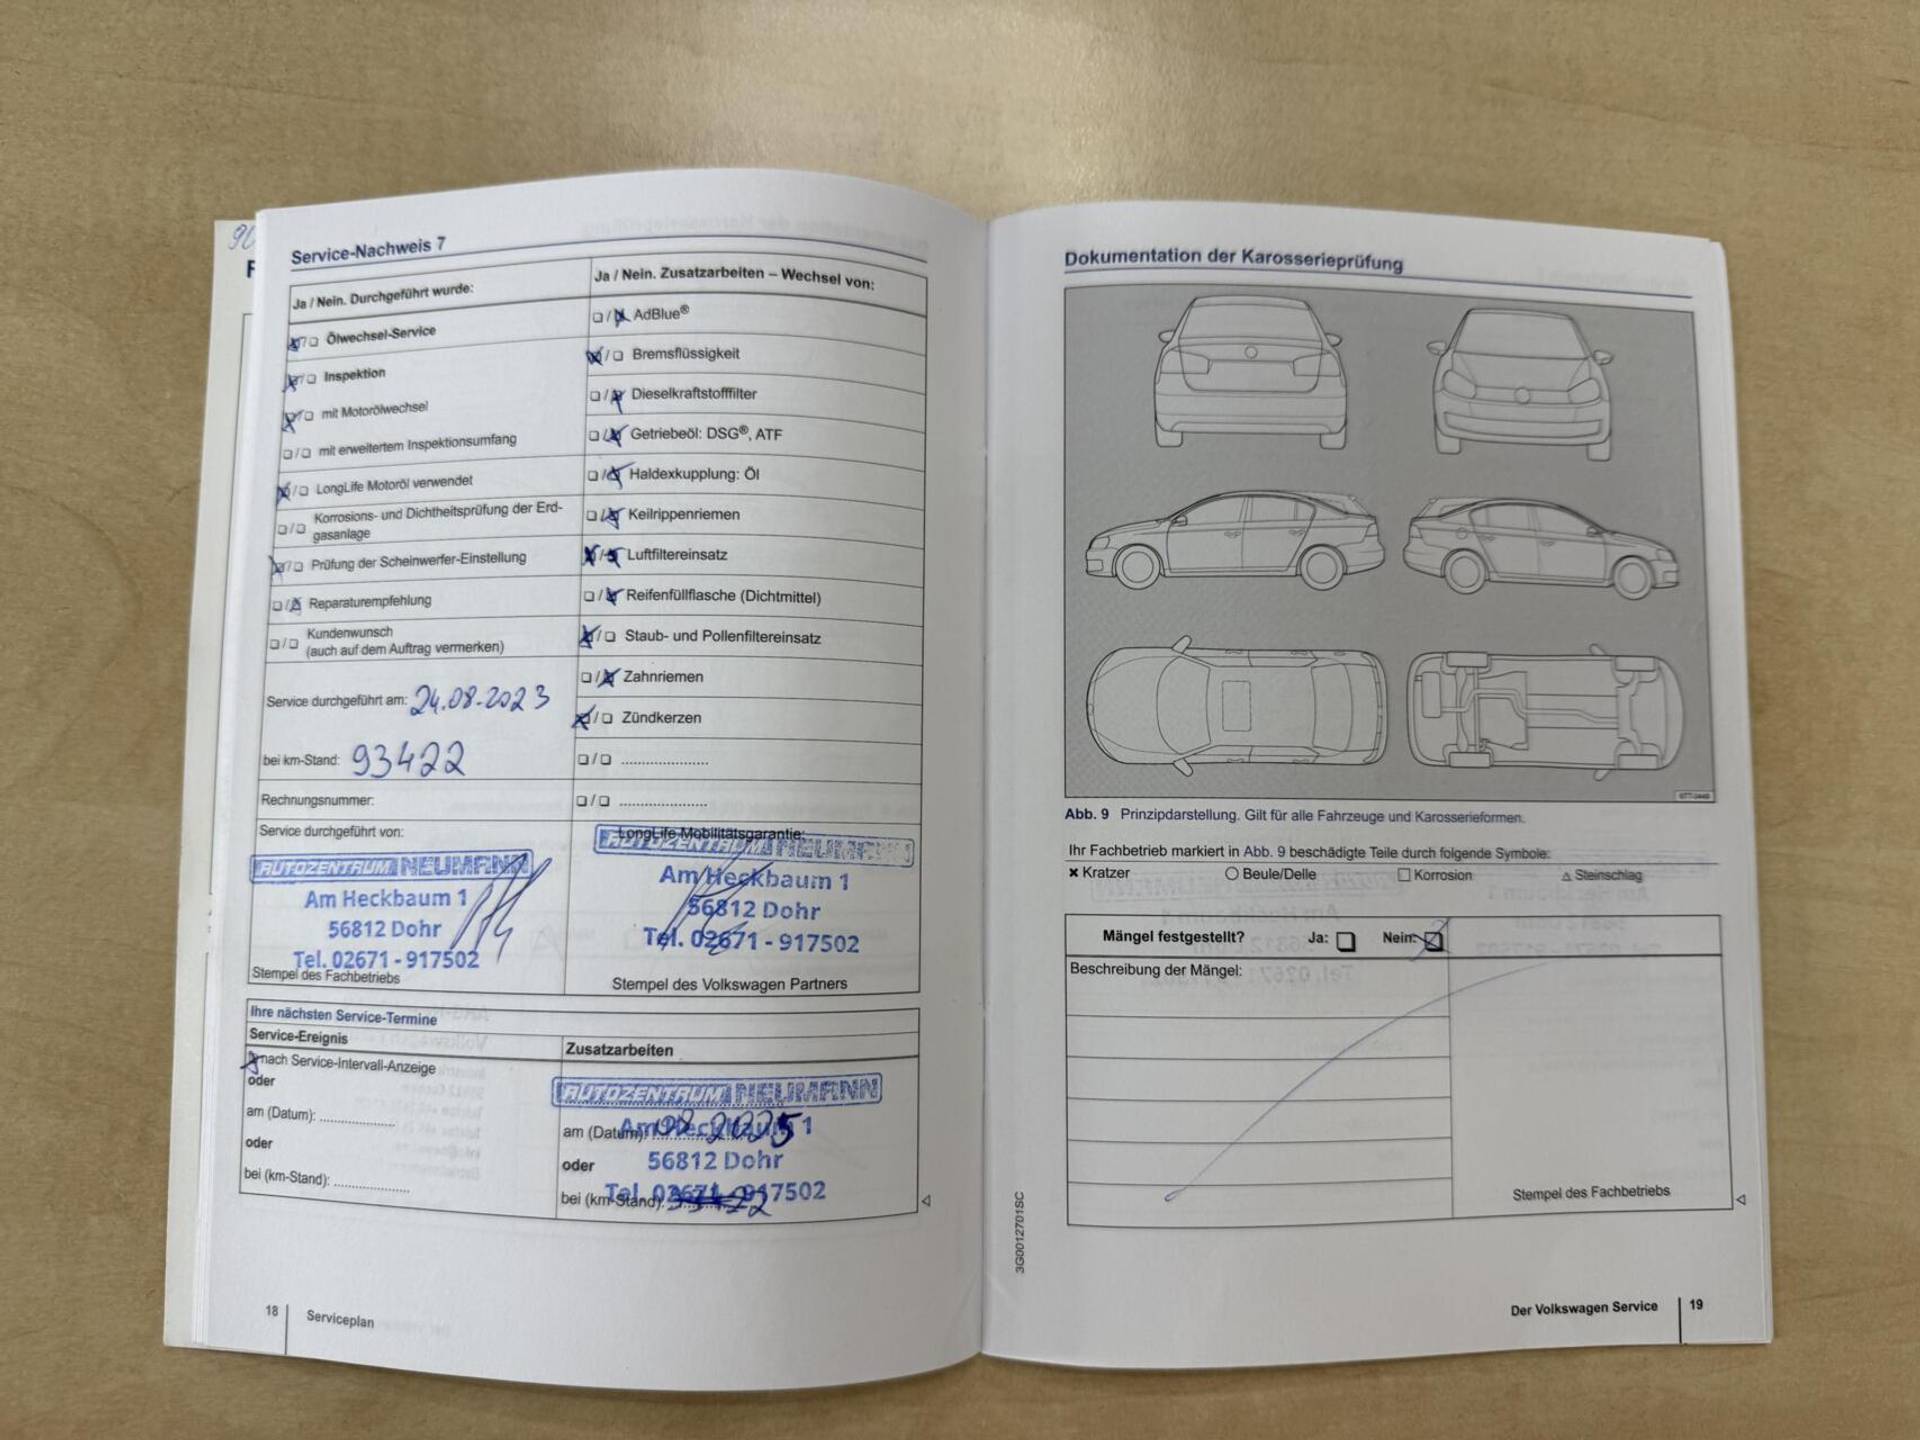 Service-Nachweis 7
Ja / Nein. Durchgeführt wurde:
Ölwechsel-Service
Inspektion
mit Motorölwechsel
mit erweitertem Inspektionsumfang
LongLife Motoröl verwendet
Korrosions- und Dichtheitsprüfung der Erd-
gasanlage
Prüfung der Scheinwerfer-Einstellung
Reparaturempfehlung
Kundenwunsch
(auch auf dem Auftrag vermerken)
Service durchgeführt am: 24.08.2023
bei km-Stand: 93422
Rechnungsnummer:
Service durchgeführt von:
AUTOZENTRUM NEUMANN
Am Heckbaum 1
56812 Dohr
Tel. 02671 - 917502
Stempel des Fachbetriebs
Ja / Nein. Zusatzarbeiten – Wechsel von:
AdBlue®
Bremsflüssigkeit
Dieselkraftstofffilter
Getriebeöl: DSG®, ATF
Haldexkupplung: Öl
Keilrippenriemen
Luftfiltereinsatz
Reifenfüllflasche (Dichtmittel)
Staub- und Pollenfiltereinsatz
Zahnriemen
Zündkerzen
LongLife Mobilitätsgarantie:
AUTOZENTRUM NEUMANN
Am Heckbaum 1
56812 Dohr
Tel. 02671 - 917502
Stempel des Volkswagen Partners
Ihre nächsten Service-Termine
Service-Ereignis
nach Service-Intervall-Anzeige
oder
am (Datum):
oder
bei (km-Stand):
Zusatzarbeiten
AUTOZENTRUM NEUMANN
am (Datum): 08 2025
Am Heckbaum 1
oder
56812 Dohr
bei (km-Stand):
Tel. 02671 - 917502
18
Serviceplan
Dokumentation der Karosserieprüfung
Abb. 9 Prinzipdarstellung. Gilt für alle Fahrzeuge und Karosserieformen.
Ihr Fachbetrieb markiert in Abb. 9 beschädigte Teile durch folgende Symbole:
Kratzer
Beule/Delle
Korrosion
Steinschlag
Mängel festgestellt? Ja: Nein:
Beschreibung der Mängel:
Stempel des Fachbetriebs
3G0012701SC
Der Volkswagen Service
19